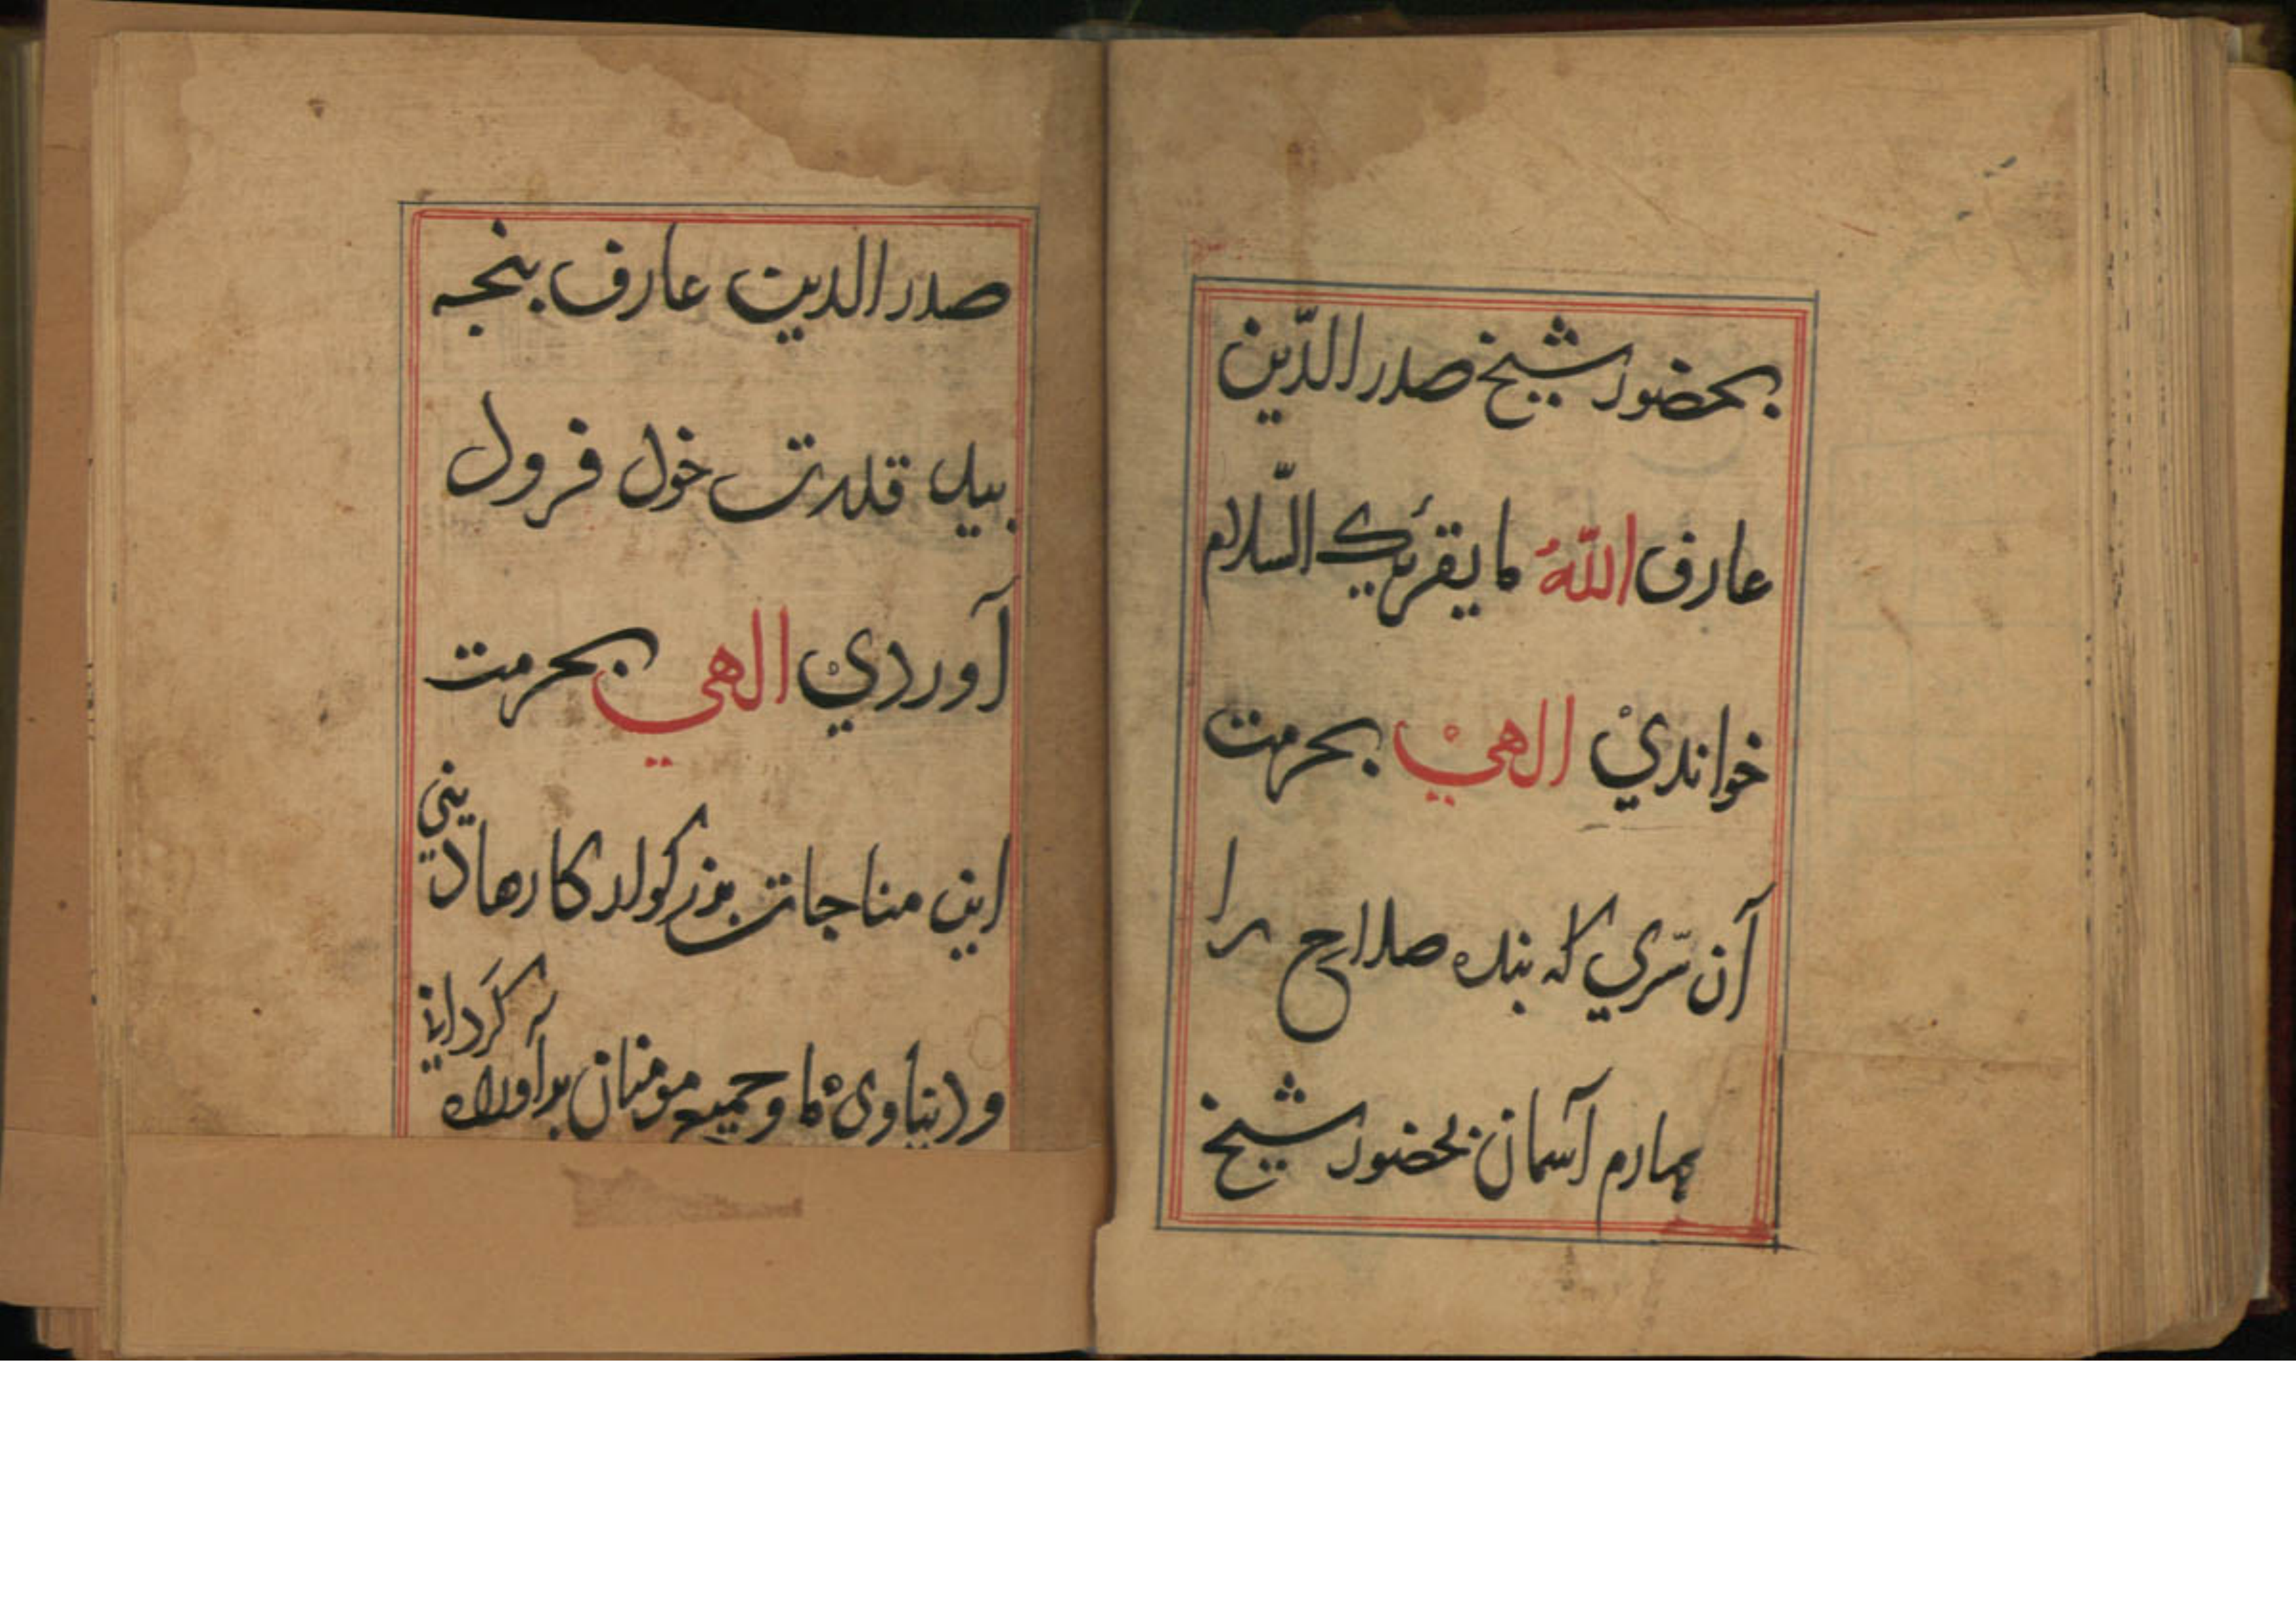 بحضور شيخ صدر الدّين
عارف اللّهُ ما يقرئك السّلام
خوانديْ الهيْ بحرمت
آن سّري كه بنده صلاح را
چهارم آسمان بحضور شيخ
صدر الدين عارف بنجه
بيد قدرت خود فرود
آوردي الهي بحرمت
اين مناجات بزرگوار كارها ديني
ودنياوي ما وجميع مومنان برآورده گرداني